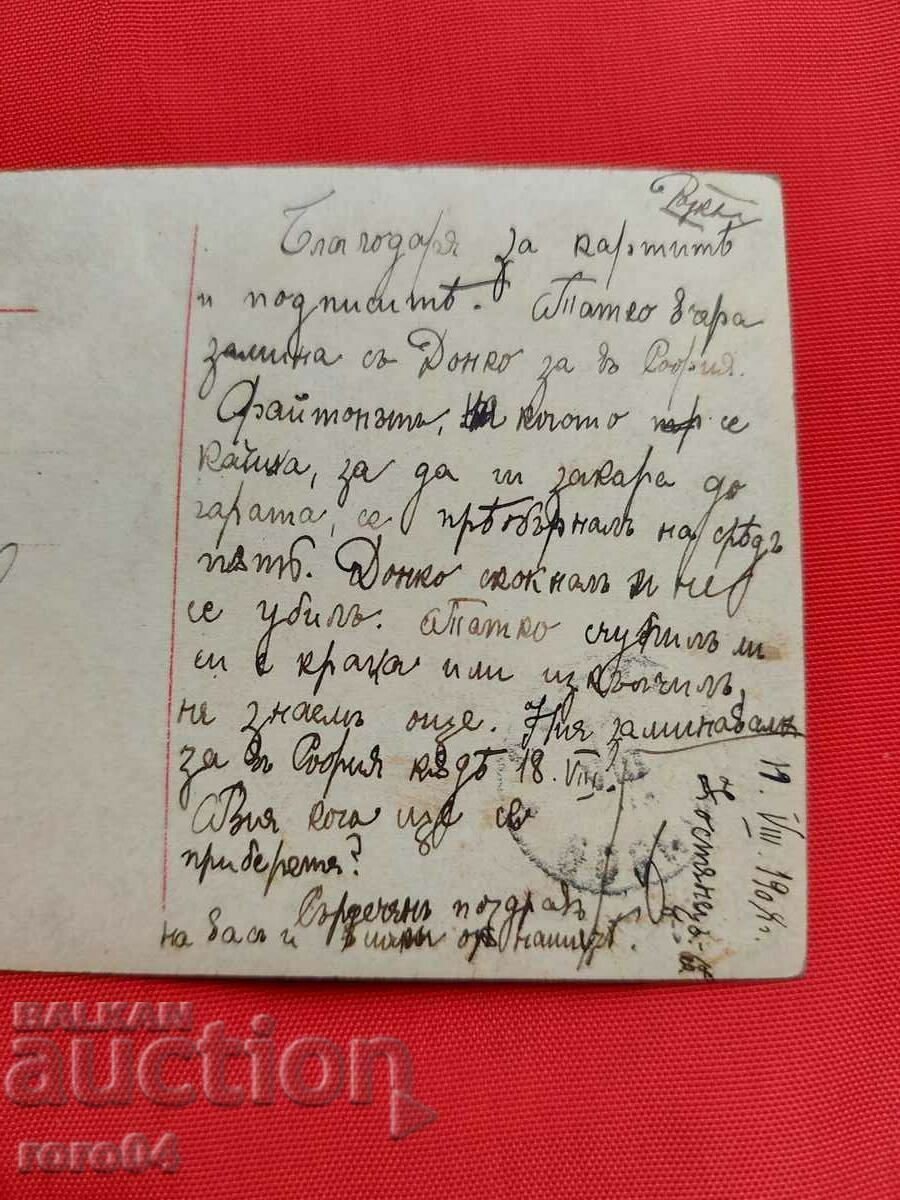 Благодаря за картитѣ
и подписитѣ. Татко вчера
замина съ Донко за въ София.
Файтонътъ, на който се
качиха, за да ги закара до
гарата, се прѣобърналъ на срѣдъ
пѫть. Донко скокналъ и не
се убилъ. Татко счупилъ ли
си е крака или изкълчилъ,
не знаемъ още. Ния заминаваме
за въ София кѫдѣ 18. VIII.
А Вия кога ще се
приберете?
Сърдеченъ поздравъ
на васъ и отъ нашитѣ.
Костенецъ
VIII. 190
BALKAN
auction
roro04